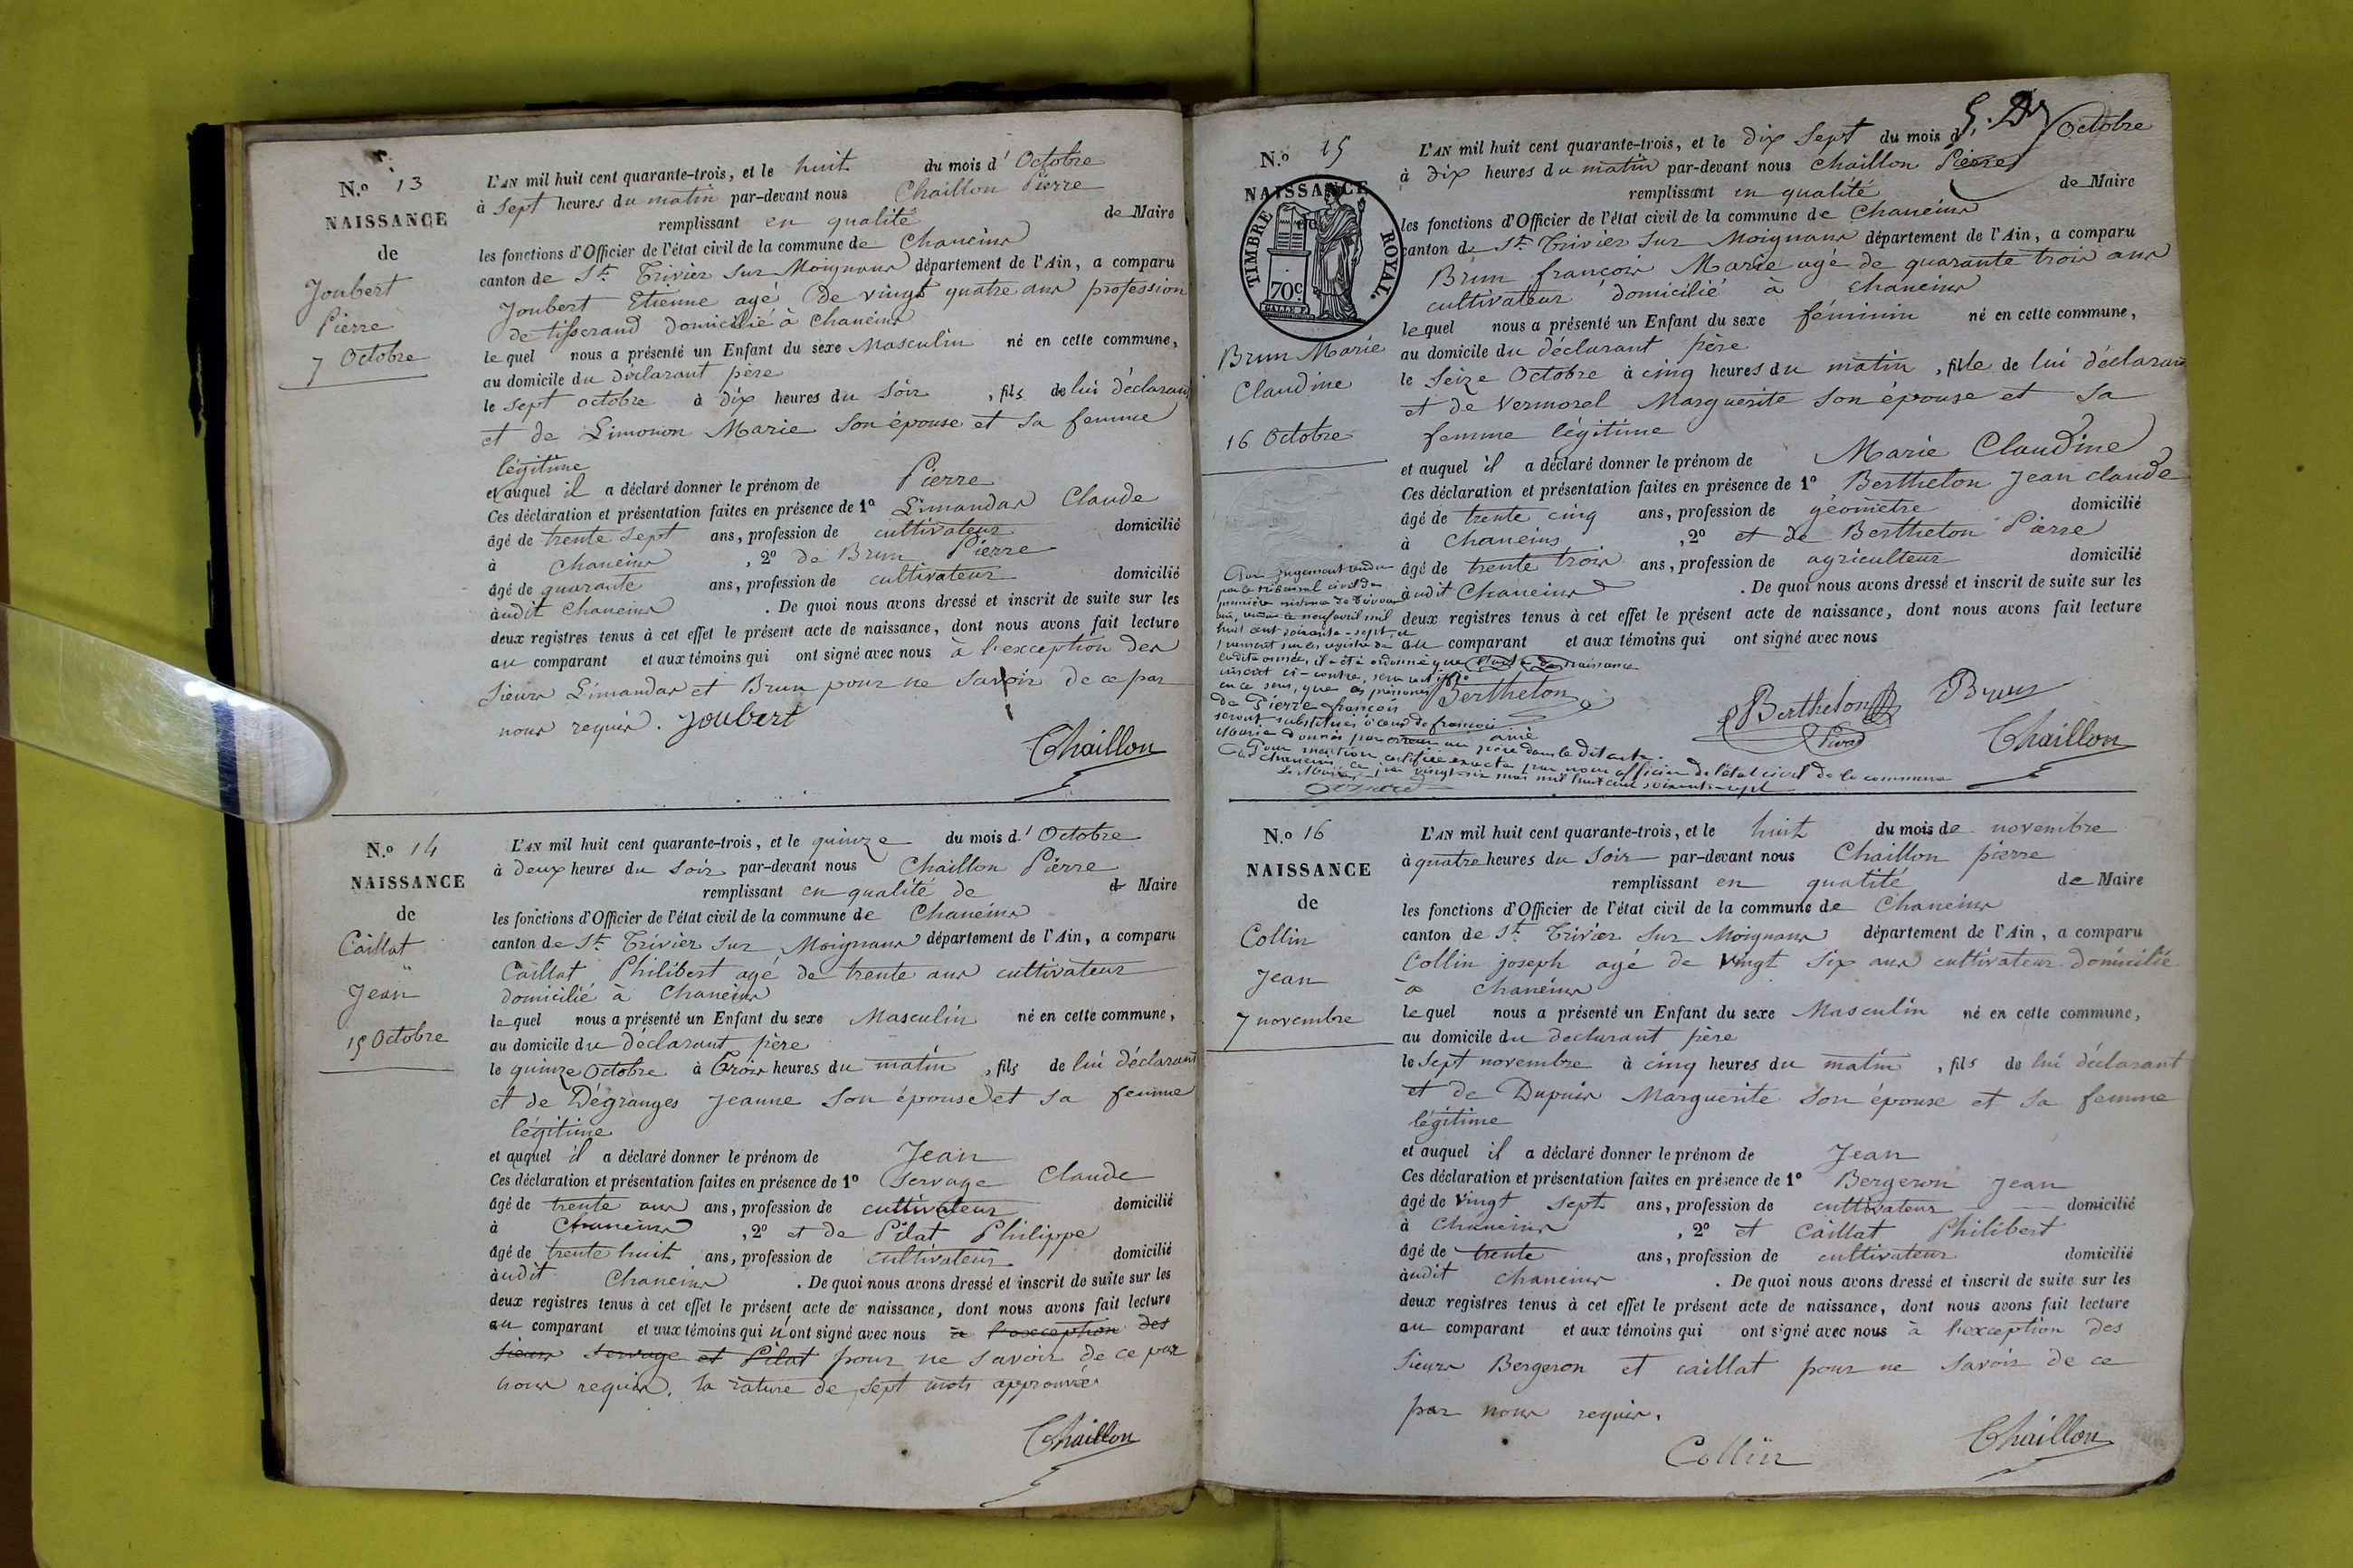 N.o 13
NAISSANCE
de
Joubert
Pierre
7 Octobre
L'AN mil huit cent quarante-trois, et le huit du mois d'Octobre
à Sept heures du matin par-devant nous Chaillon Pierre
remplissant en qualité de Maire
les fonctions d'Officier de l'état civil de la commune de Chaneins
canton de St Trivier sur Moignans département de l'Ain, a comparu
Joubert Etienne agé de vingt quatre ans profession
de tisserand domicilié à Chaneins
lequel nous a présenté un Enfant du sexe Masculin né en cette commune,
au domicile du déclarant père
le sept octobre à dix heures du soir, fils de lui déclarant
et de Limonon Marie son épouse et sa femme
légitime
et auquel il a déclaré donner le prénom de Pierre
Ces déclaration et présentation faites en présence de 1o Limandas Claude
âgé de trente sept ans, profession de cultivateur domicilié
à Chaneins, 2o de Brun Pierre
âgé de quarante ans, profession de cultivateur domicilié
audit Chaneins. De quoi nous avons dressé et inscrit de suite sur les
deux registres tenus à cet effet le présent acte de naissance, dont nous avons fait lecture
au comparant et aux témoins qui ont signé avec nous à l'exception des
sieurs Limandas et Brun pour ne savoir de ce par
nous requis. Joubert
Chaillon
N.o 14
NAISSANCE
de
Caillat
Jean
15 Octobre
L'AN mil huit cent quarante-trois, et le quinze du mois d'Octobre
à deux heures du soir par-devant nous Chaillon Pierre
remplissant en qualité de de Maire
les fonctions d'Officier de l'état civil de la commune de Chaneins
canton de St Trivier sur Moignans département de l'Ain, a comparu
Caillat Philibert agé de trente ans cultivateur
domicilié à Chaneins
lequel nous a présenté un Enfant du sexe Masculin né en cette commune,
au domicile du déclarant père
le quinze Octobre à trois heures du matin, fils de lui déclarant
et de Dégranges Jeanne son épouse et sa femme
légitime
et auquel il a déclaré donner le prénom de Jean
Ces déclaration et présentation faites en présence de 1o Servage Claude
âgé de trente ans ans, profession de cultivateur domicilié
à Chaneins, 2o et de Pilat Philippe
âgé de trente huit ans, profession de cultivateur domicilié
audit Chaneins. De quoi nous avons dressé et inscrit de suite sur les
deux registres tenus à cet effet le présent acte de naissance, dont nous avons fait lecture
au comparant et aux témoins qui n'ont signé avec nous à l'exception des
sieurs Servage et Pilat pour ne savoir de ce par
nous requis. la rature de sept mots approuvée
Chaillon
Octobre
N.o 15
NAISSANCE
de
TIMBRE ROYAL.
70c
Brun Marie
Claudine
16 Octobre
L'AN mil huit cent quarante-trois, et le dix sept du mois d'
à dix heures du matin par-devant nous Chaillon Pierre
remplissant en qualité de Maire
les fonctions d'Officier de l'état civil de la commune de Chaneins
canton de St Trivier sur Moignans département de l'Ain, a comparu
Brun françois Marie agé de quarante trois ans
cultivateur domicilié à Chaneins
lequel nous a présenté un Enfant du sexe féminin né en cette commune,
au domicile du déclarant père
le Seize Octobre à cinq heures du matin, fille de lui déclarant
et de Vermorel Marguerite son épouse et sa
femme légitime
et auquel il a déclaré donner le prénom de Marie Claudine
Ces déclaration et présentation faites en présence de 1o Berthelon Jean Claude
âgé de trente cinq ans, profession de géomètre domicilié
à Chaneins, 2o et de Berthelon Pierre
âgé de trente trois ans, profession de agriculteur domicilié
audit Chaneins. De quoi nous avons dressé et inscrit de suite sur les
deux registres tenus à cet effet le présent acte de naissance, dont nous avons fait lecture
au comparant et aux témoins qui ont signé avec nous
Berthelon Berthelon Brun
Chaillon
Par jugement rendu
par le tribunal civil de
première instance de Trévoux
le neuf avril mil
huit cent soixante-sept,
sur les registres de
ladite année, il a été ordonné que l'acte de naissance
inscrit ci-contre, sera rectifié
en ce sens, que les prénoms
de Pierre françois
seront substitués à ceux de françois
Marie donnés par erreur au père dans le dit acte.
Pour mention certifiée exacte par nous officier de l'état civil de la commune
de Chaneins, ce vingt-six mai mil huit cent soixante-sept
Le Maire
N.o 16
NAISSANCE
de
Collin
Jean
7 novembre
L'AN mil huit cent quarante-trois, et le huit du mois de novembre
à quatre heures du soir par-devant nous Chaillon pierre
remplissant en qualité de Maire
les fonctions d'Officier de l'état civil de la commune de Chaneins
canton de St Trivier sur Moignans département de l'Ain, a comparu
Collin joseph agé de vingt six ans cultivateur domicilié
à chaneins
lequel nous a présenté un Enfant du sexe Masculin né en cette commune,
au domicile du declarant père
le sept novembre à cinq heures du matin, fils de lui déclarant
et de Dupuis Marguerite son épouse et sa femme
légitime
et auquel il a déclaré donner le prénom de Jean
Ces déclaration et présentation faites en présence de 1o Bergeron Jean
âgé de vingt sept ans, profession de cultivateur domicilié
à Chaneins, 2o et Caillat Philibert
âgé de trente ans, profession de cultivateur domicilié
audit chaneins. De quoi nous avons dressé et inscrit de suite sur les
deux registres tenus à cet effet le présent acte de naissance, dont nous avons fait lecture
au comparant et aux témoins qui ont signé avec nous à l'exception des
sieurs Bergeron et caillat pour ne savoir de ce
par nous requis.
Collin
Chaillon